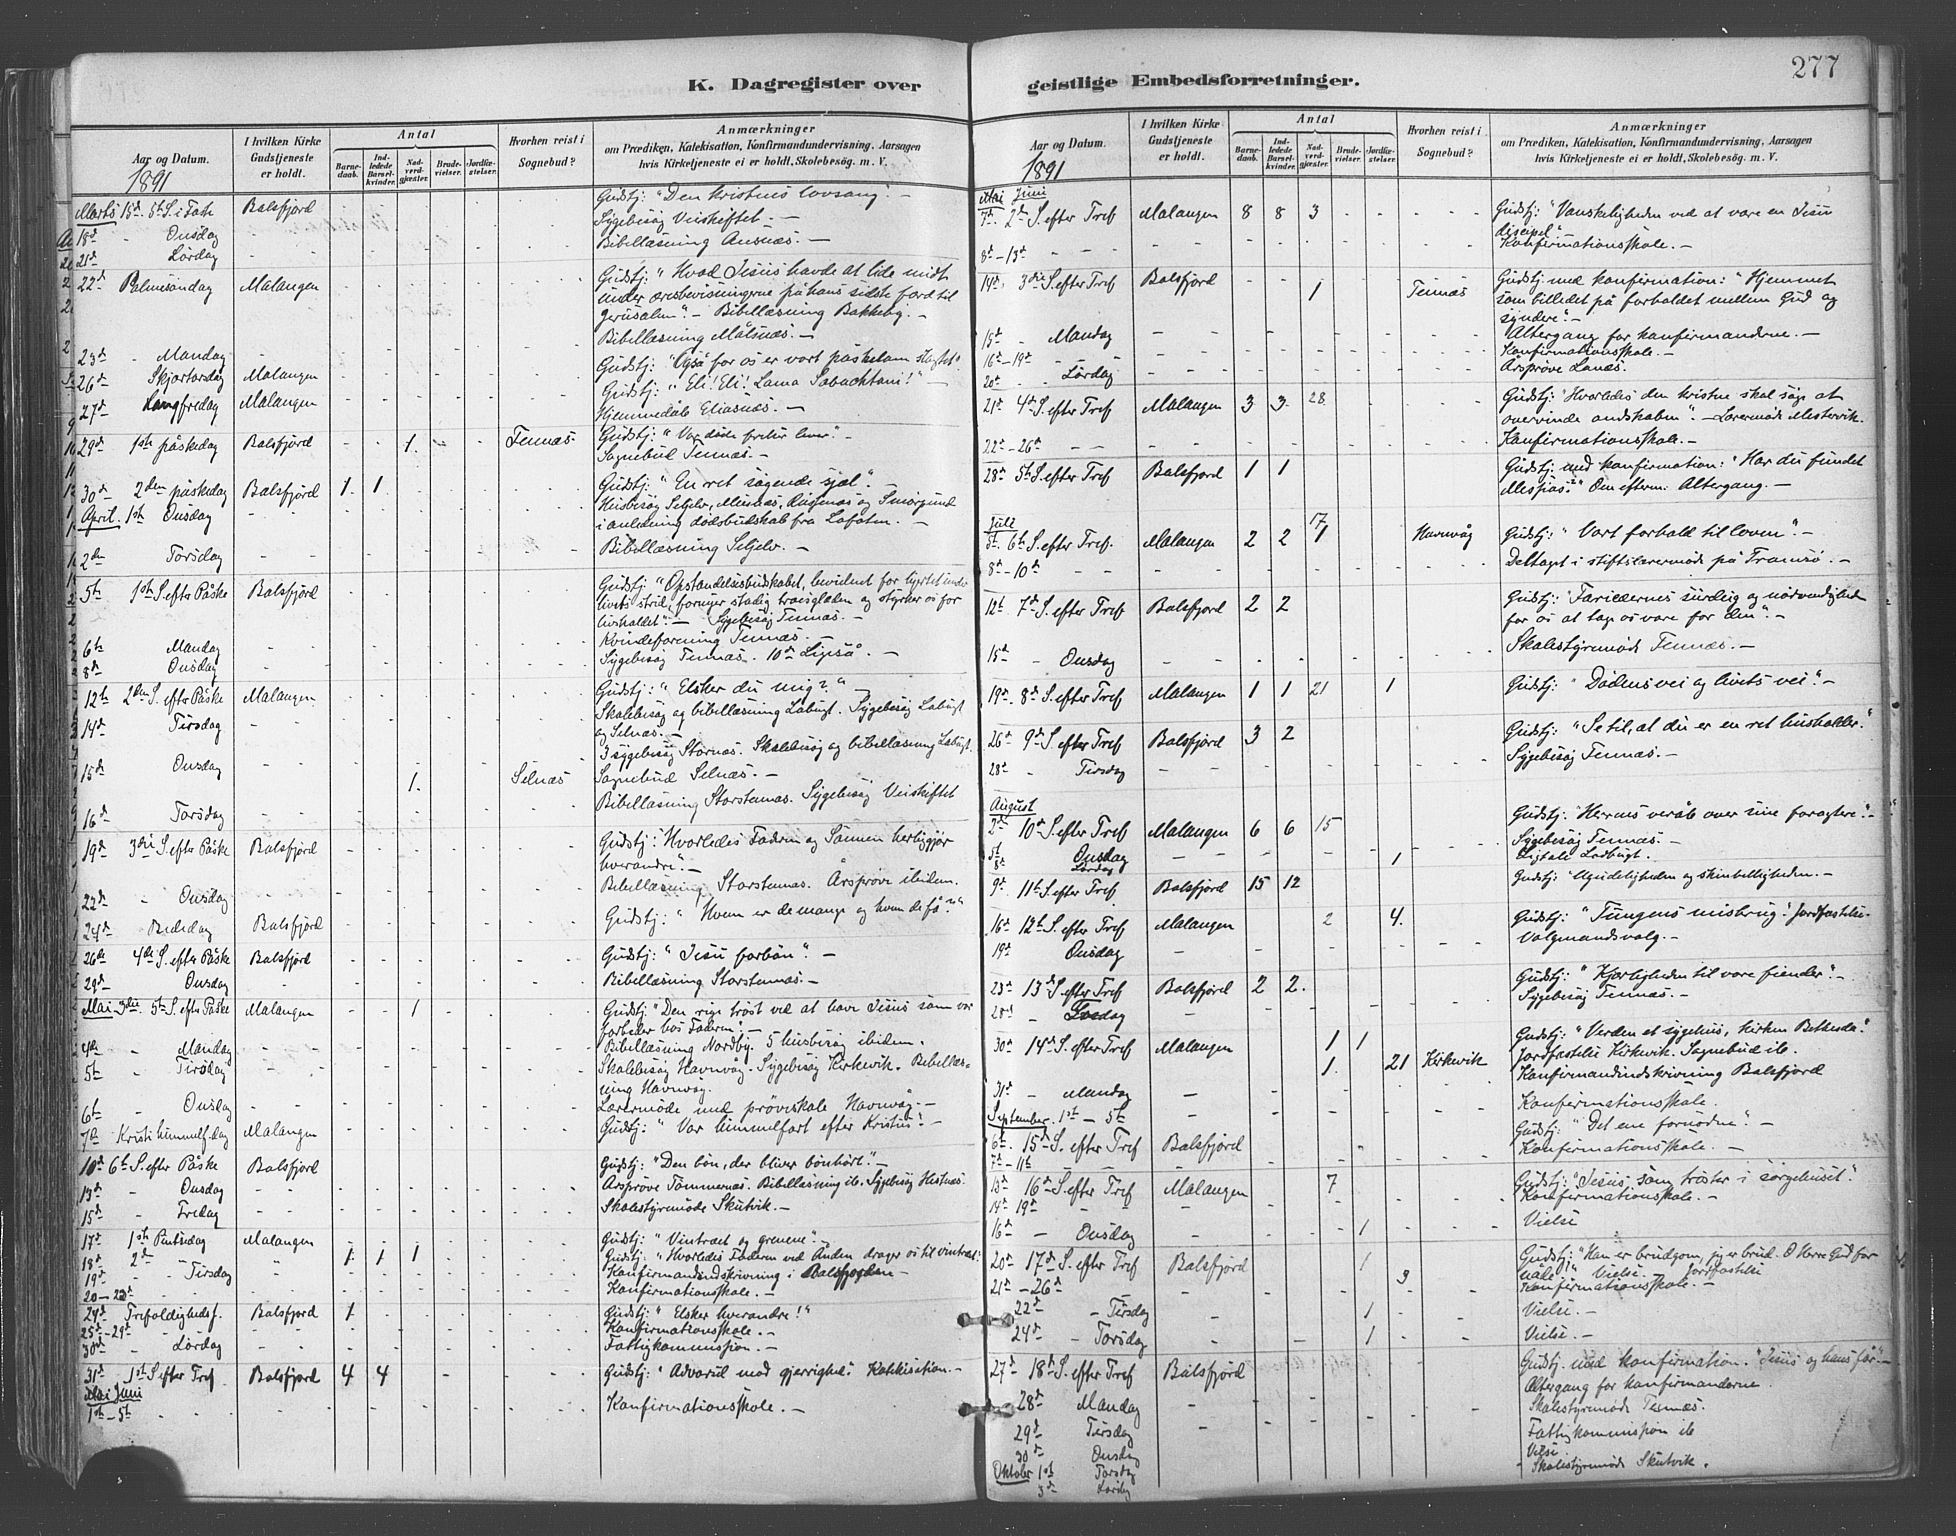 277
K. Dagregister over
geistlige Embedsforretninger.
Aar og Datum.
I hvilken Kirke Gudstjeneste er holdt.
Antal
Barnedaab.
Indledede Barselkvinder.
Nadverdgjæster.
Brudevielser.
Jordfæstelser.
Hvorhen reist i Sognebud?
Anmærkninger
om Prædiken, Katekisation, Konfirmandundervisning, Aarsagen
hvis Kirketjeneste ei er holdt, Skolebesøg. m. V.
1891
Marts 15d. 5t S. i Faste Balsfjord Gudstj: "Den kristnes lovsang." –
18d " Onsdag Sygebesøg –
21d Lørdag Bibellæsning Ansnæs. –
22d Palmesøndag Malangen Gudstj: "Hvad Jesus havde at lide midt
under æresbevisningerne på hans sidste færd til
Jerusalem". – Bibellæsning Bakkeby. –
Bibellæsning Målsnæs. –
23d " Mandag
26d Skjærtorsdag Malangen Gudstj: "Også for os er vort påskelam slagtet".
27d Langfredag Malangen Gudstj: "Eli! Eli! Lama Sabachtani!" –
Hjemmedåb Eliasnæs. –
29d 1st påskedag Balsfjord 1. Tennæs. Gudstj: "Vor døde frelser lever". –
Sognebud Tennæs. –
30d 2den påskedag Balsfjord 1. 1 Gudstj: "En ret søgende sjæl". –
April. 1st Onsdag Husbesøg Seljelv,
i anledning dødsbudskab fra Lofoten. –
2den Torsdag Bibellæsning Seljelv. –
5t 1st S. efter Påske Balsfjord Gudstj: "Opstandelsesbudskabet, bevidnet for hjertet under
livets strid, fornyer stadig trosglæden og styrker os for
livsholdet". – Sygebesøg Tennæs. –
6t Mandag Kvindeforening Tennæs. –
8d Onsdag Sygebesøg Tennæs. 10d Ligeså. –
12t 2den S. efter Påske Malangen Gudstj: "Elsker du mig?" –
14d Tirsdag Skolebesøg og bibellæsning Løbugt. Sygebesøg Løbugt
og Selnæs. –
15d Onsdag 1. Selnæs 3 sygebesøg Stornæs. Skolebesøg og bibellæsning Løbugt.
Sognebud Selnæs. –
16d Torsdag Bibellæsning Storstennæs. Sygebesøg
19d 3die S. efter Påske Balsfjord Gudstj: "Hvorledes Faderen og Sønnen herliggjør
hverandre". –
22d " Onsdag Bibellæsning Storstennæs. Årsprøve ibidem.
24d Bededag Balsfjord Gudstj: "Hvem er de mange og hvem de få?"
26de 4de S. efter Påske Balsfjord Gudstj: "Jesu forbøn". –
29d Onsdag Bibellæsning Storstennæs. –
Mai 3die 5t S. efter Påske Malangen 1 Gudstj: "Den rige trøst ved at have Jesus som vor
forbeder hos Faderen". –
4de " Mandag Bibellæsning Nordby. 5 husbesøg ibidem.
5t " Tirsdag Skolebesøg Havnvåg. Sygebesøg Kirkevik. Bibellæsning Havnvåg.
6t " Onsdag Lærermøde med prøveskole Havnvåg. –
7de Kristi himmelf.dag Malangen Gudstj: "Vor himmelfart efter Kristus". –
10d 6t S. efter Påske Balsfjord Gudstj: "Den bøn, der bliver bønhørt". –
13d " Onsdag Årsprøve Tømmernæs. Bibellæsning ib. Sygebesøg Hestnæs.
15d " Fredag Skolestyremøde Skutvik. –
17d 1st Pintsedag Malangen Gudstj: "Vintræet og grenene". –
18d 2d " " 1 1 1 Gudstj: "Hvorledes Faderen ved Ånden drager os til vintræet".
19d " Tirsdag Konfirmandindskrivning i Balsfjorden –
20–23d Konfirmationsskole. –
24d Trefoldighedsf. Balsfjord 1. Gudstj: "Elsker hverandre!"
25d–29d Konfirmationsskole. –
30d Lørdag Fattigkommission. –
31d 1st S. efter Tref. Balsfjord 4 4 Gudstj: "Advarsel mod gjerrighed". Katekisation. –
Juni
1st–5t Konfirmationsskole. –
Aar og Datum.
I hvilken Kirke Gudstjeneste er holdt.
Antal
Barnedaab.
Indledede Barselkvinder.
Nadverdgjæster.
Brudevielser.
Jordfæstelser.
Hvorhen reist i Sognebud?
Anmærkninger
om Prædiken, Katekisation, Konfirmandundervisning, Aarsagen
hvis Kirketjeneste ei er holdt, Skolebesøg. m. V.
1891
Juni
7d. 2d S. efter Tref Malangen 8 8 3 Gudstj: "Vanskeligheden ved at være en Jesu
discipel". –
8d–13d Konfirmationsskole. –
14d. 3die S. efter Tref Balsfjord 1 Tennæs Gudstj: med konfirmation: "Hjemmet
som billedet på forholdet mellem Gud og
syndere". –
15d " Mandag Altergang for konfirmanderne. –
16d–19d Konfirmationsskole. –
20d Lørdag Årsprøve Lanæs.
21d 4d S. efter Tref Malangen 3 3. 28 Gudstj: "Hvorledes den kristne skal søge at
overvinde ondskaben". – Lærermøde Mestervik.
22–26d Konfirmationsskole. –
28d 5t S. efter Tref Balsfjord 1 1 Gudstj: med konfirmation: "Har du fundet
Messias?" Om efterm: Altergang. –
Juli
5t. 6t S. efter Tref. Malangen 2 2 17 1 Havnvåg Gudstj: "Vort forhold til loven". –
8d–10d Deltaget i stiftslærermøde på Tromsø. –
12t 7d S. efter Tref Balsfjord 2 2 Gudstj: nødvendighed
for os at tage os vare for dem". –
15d " Onsdag Skolestyremøde Tennæs. –
19d 8d S. efter Tref Malangen 1 1 21 1 Gudstj: "Dødens vei og livets vei". –
26d 9d S. efter Tref Balsfjord 3 2 Gudstj: "Se til, at du er en ret husholder".
28d " Tirsdag Sygebesøg Tennæs. –
August
2d 10d S. efter Tref Malangen 6 6 15 Gudstj: "Herrens veråb over sine foragtere". –
5t Onsdag Sygebesøg Tennæs. –
8d Lørdag 1 Ligtale
9d. 11t S. efter Tref Balsfjord 15 12 Gudstj: "Ugudeligheden og skinhelligheden. –
16d 12t S. efter Tref Malangen 2 4. Gudstj: "Tungens misbrug". Jordfæstelse.
19d Onsdag Valgmandsvalg. –
23d 13d S. efter Tref Balsfjord 2 2. Gudstj: "Kjærligheden til vore fiender". –
28d " Sygebesøg Tennæs. –
30d 14d S. efter Tref Malangen 1 1 Gudstj: "Verden et sygehus, kirken Bethesda".
1. 21 Kirkevik Jordfæstelse Kirkevik. Sognebud ib.
31d " Mandag Konfirmandindskrivning Balsfjord
September. 1st–5t Konfirmationsskole.
6t. 15d S. efter Tref Balsfjord Gudstj: "Det ene fornødne". –
7d–11t Konfirmationsskole. –
13d 16d S. efter Tref Malangen 7 Gudstj: "Jesus som trøster i sørgehuset".
14d 19d Konfirmationsskole. –
16d – Onsdag 1 Vielse
20d 17d S. efter Tref Balsfjord 1 Gudstj: "Han er brudgom, jeg er brud. O Herre Gud for
nåde!" Vielse. Jordfæstelse
21d–26d Konfirmationsskole. –
22d " Tirsdag 1 Vielse. –
24d " Torsdag 1 Vielse. –
27d 18d S. efter Tref Balsfjord Gudstj. med konfirmation. "Jesus og hans får". –
28d Mandag Altergang for konfirmanderne.
29d Tirsdag Skolestyremøde Tennæs.
30d Onsdag Fattigkommission ib
Oktober 1st Torsdag Vielse
3d Lørdag Skolestyremøde Skutvik.